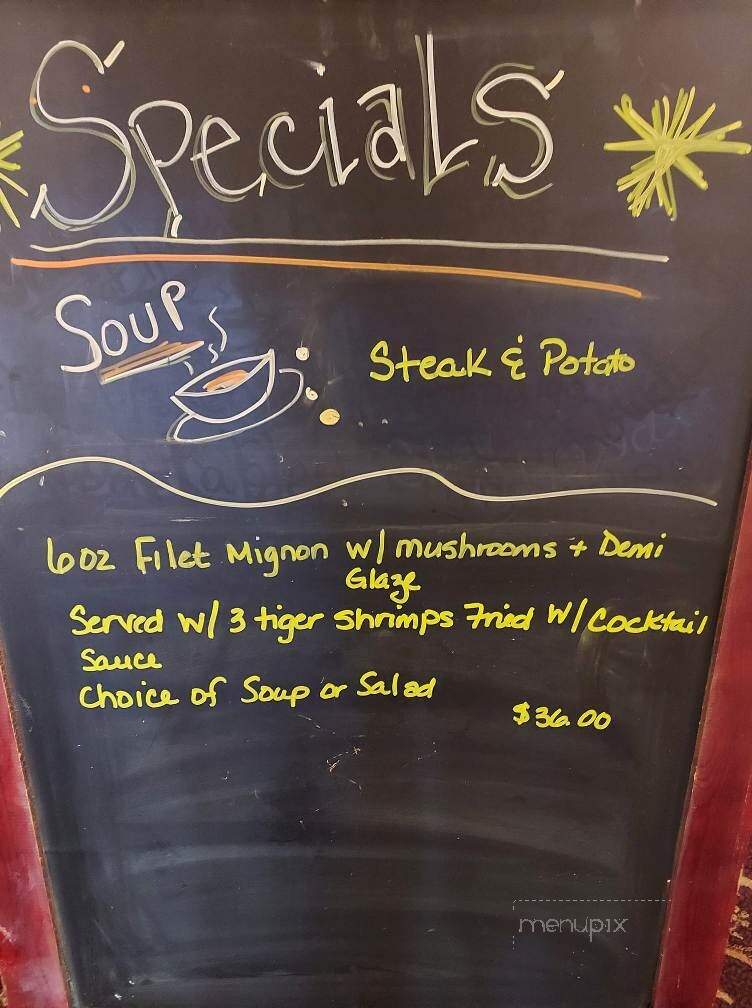 Specials
Soup
Steak & Potato
6oz Filet Mignon w/ mushrooms + Demi
Glaze
Served w/ 3 tiger shrimps Fried w/ Cocktail
Sauce
Choice of Soup or Salad
$36.00
menupix